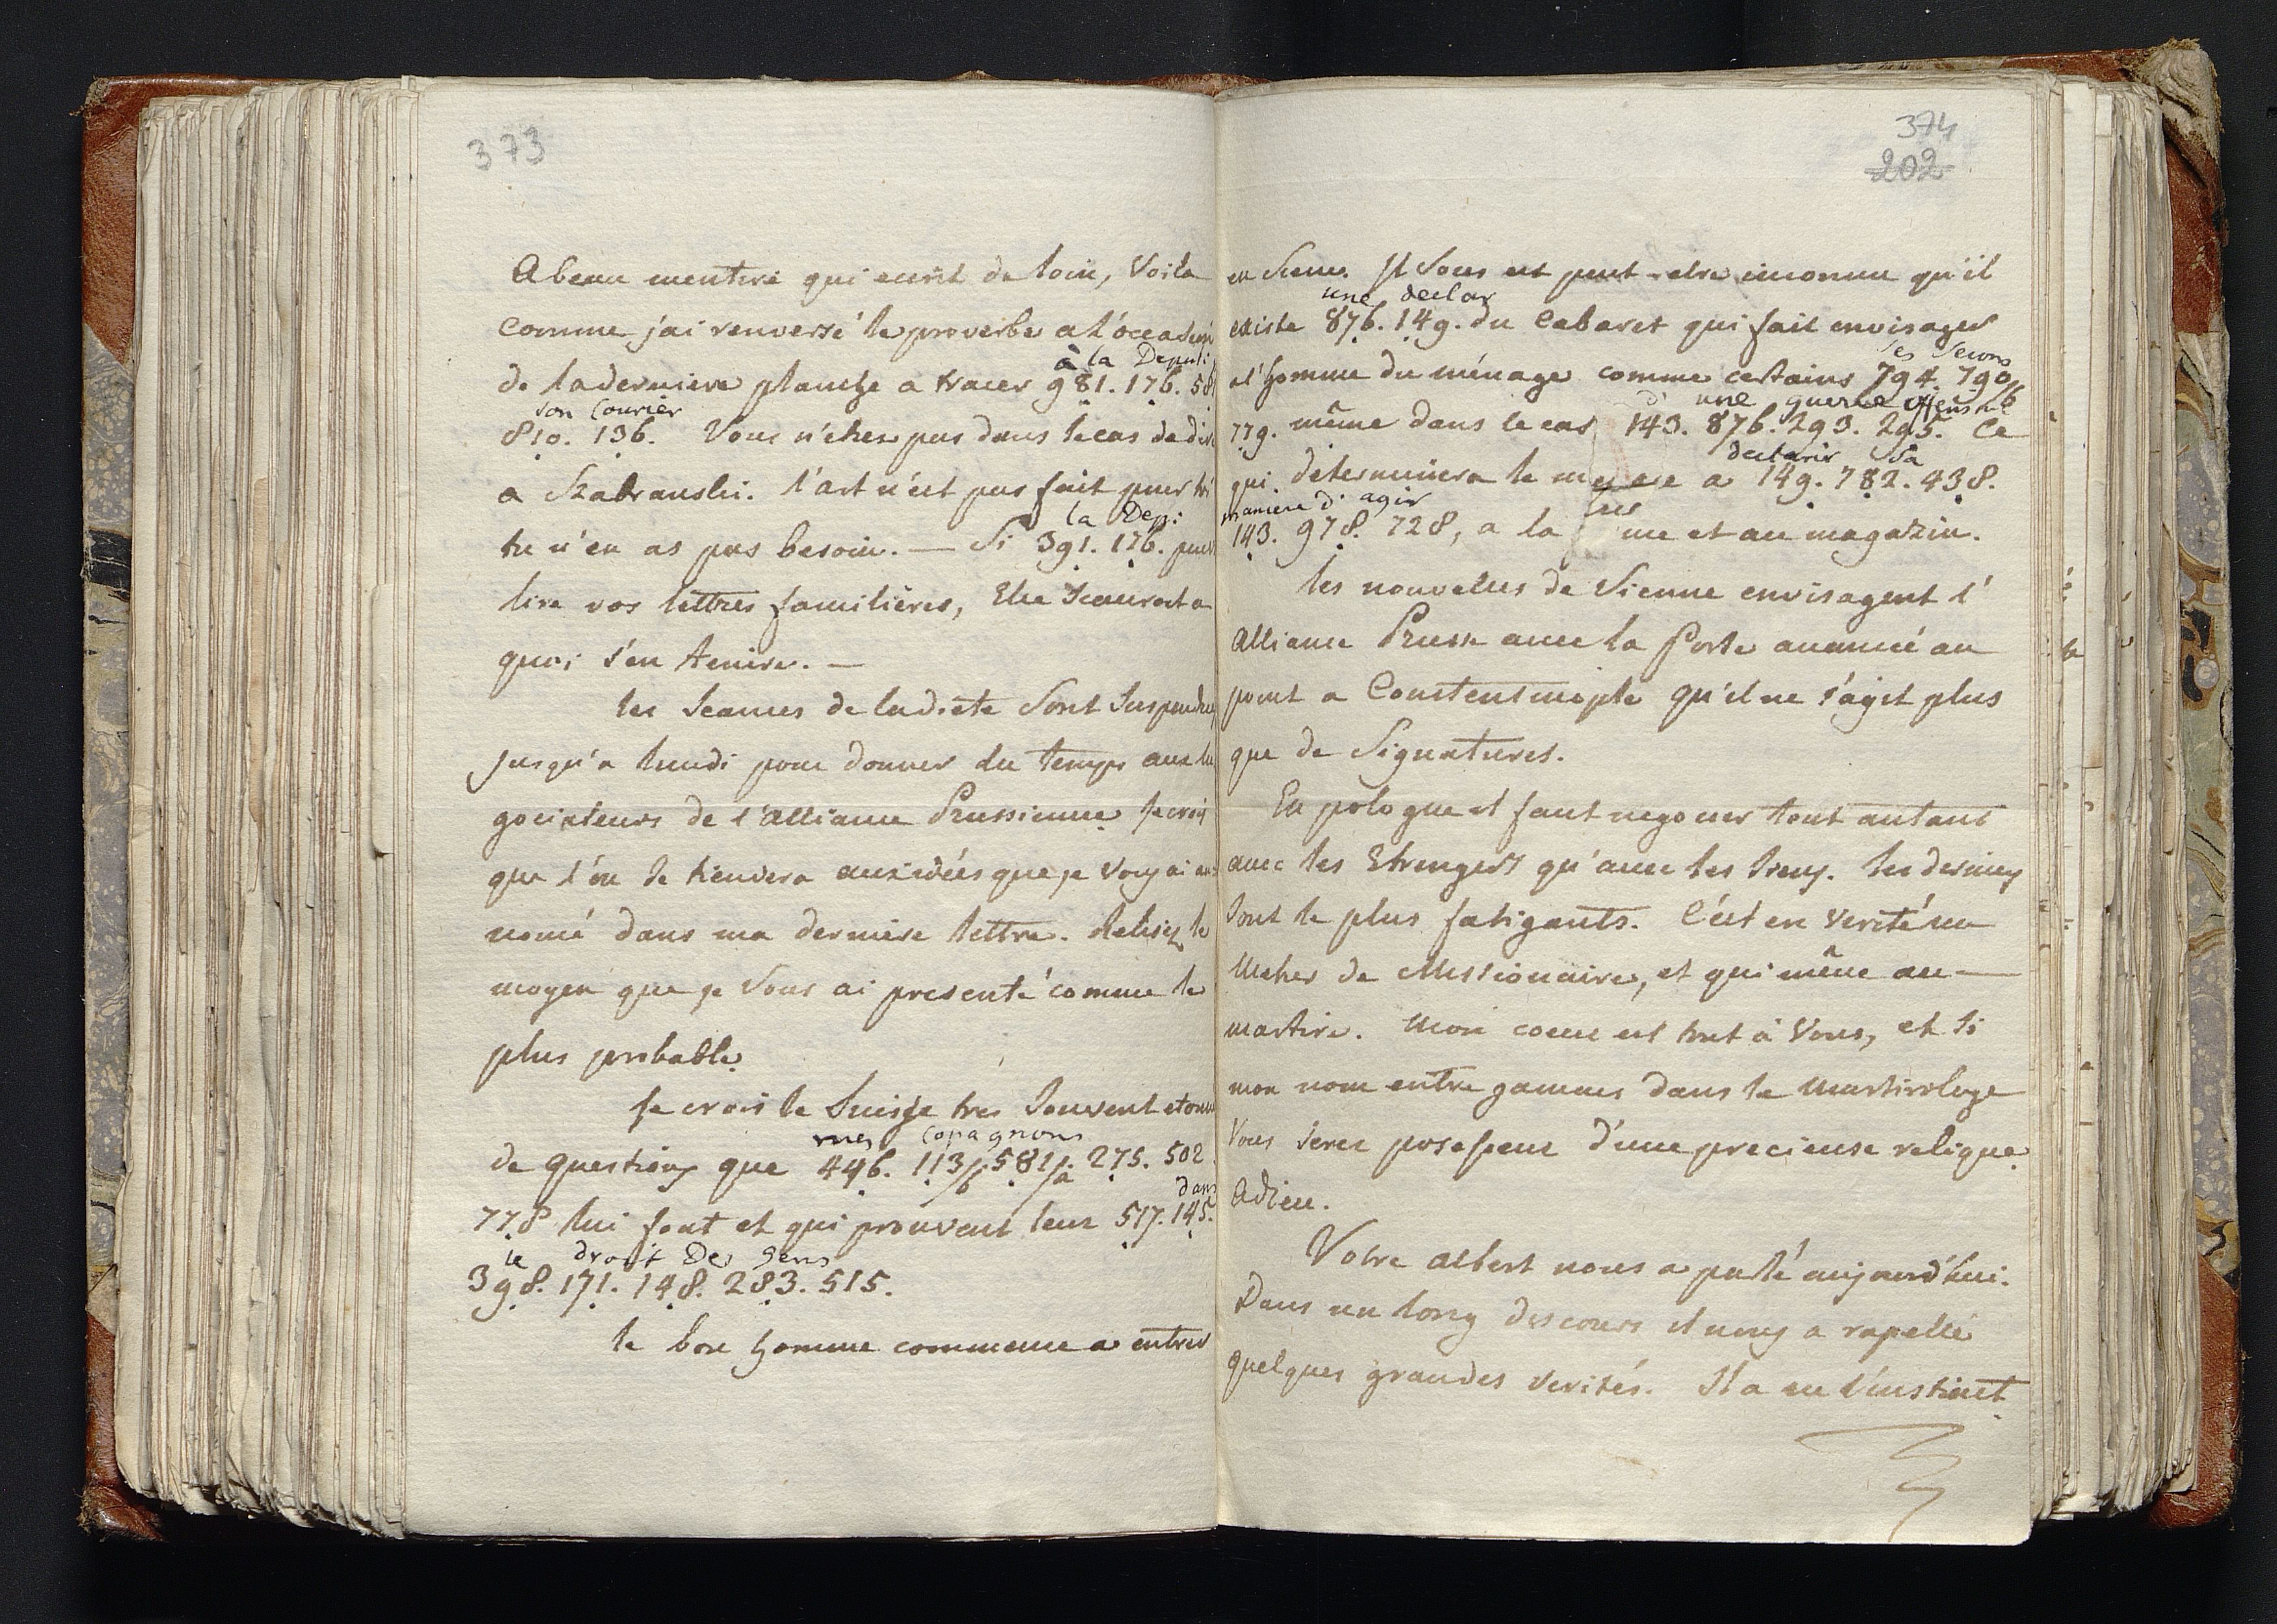 373
A beau mentire qui ecrit de loin, Voila
comme j'ai renversé le proverbe a l'occasion
à la Deputi
de la derniere planche a tracer 981. 176. 581
son Courier
810. 136. Vous n'etes pas dans le cas de dire
a Szabranski. l'art n'est pas fait pour toi
la Dep:
tu n'en as pas besoin. — Si 391. 176. peut
lire vos lettres familières, Elle scaurat a
quoi s'en tenire. —
les seances de la diete sont suspendues
jusqu'a lundi pour donner du temps aux né
gociateurs de l'alliance Prussienne. Je crois
que l'on se tiendera aux idées que je vous ai an
noncé dans ma derniere lettre. Relisez le
moyen que je vous ai presenté comme le
plus probable.
Je crois le Suisse tres souvent etonné
mes copagnons
de questions que 446. 113/6. 581/a. 275. 502.
dans
778 lui font et qui prouvent leur 517. 145.
le droit Des Gens
398. 171. 148. 283. 515.
le bon homme commence a entrer
374
202
en Scene. Il Vous est peut-etre inconnu qu'il
une declar
existe 876. 149. du Cabaret qui fait envisager
les secours
a l'homme du ménage comme certains 794. 790/6
d' une guerre offensive
779. même dans le cas 143. 876. 293. 295. Ce
declarir sa
qui determinera le a 149. 782. 438.
maniere d' agir
143. 978. 728, a la et au magazin.
les nouvelles de Vienne envisagent l'
alliance Prusse avec la Porte avancée au
point a Constentinople qu'il ne s'agit plus
que de Signatures.
En pologne il faut negocier tout autant
avec les Etrangers qu'avec les siens. les derniers
sont le plus fatigants. C'est en verité un
metier de Missionaire, et qui mêne au —
martire. Mon coeur est tout à Vous, et si
mon nom entre jammes dans le Martirologe
Vous serez posesseur d'une precieuse relique.
Adieu.
Votre albert nous a parlé aujourd'hui.
Dans un long discours il nous a rapellé
quelques grandes verités. Il a eu l'instinct